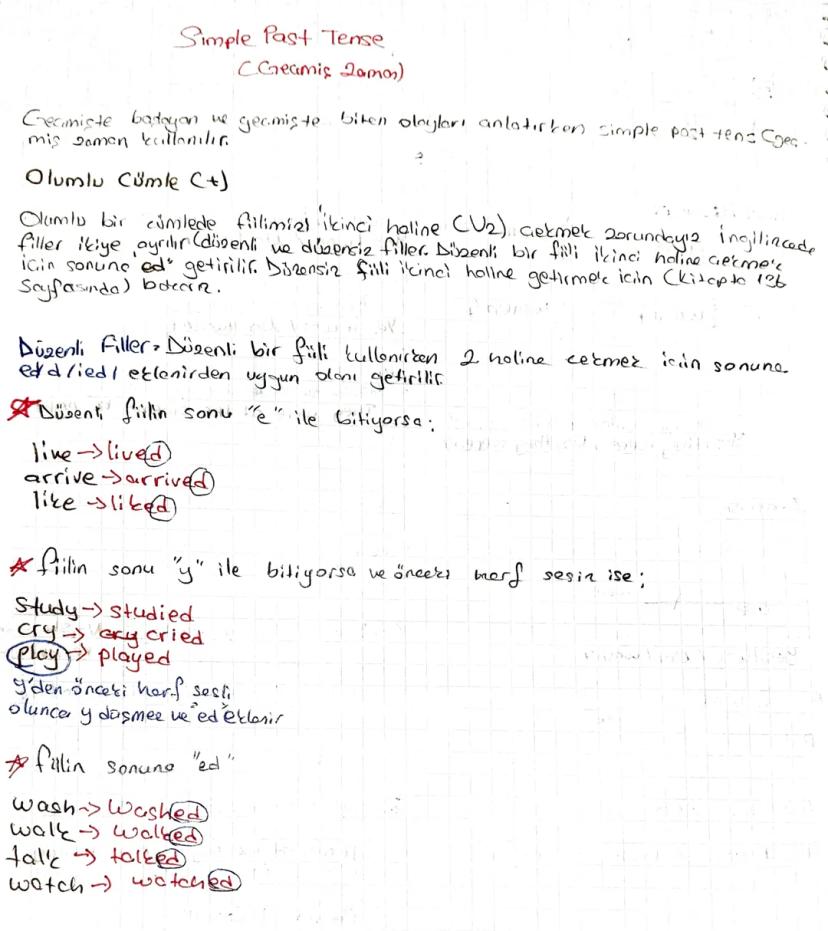 Simple Past Tense
(Geçmiş Zaman)
Geçmişte başlayan ve geçmişte biten olayları anlatırken simple past tens (geç-
miş zaman kullanılır.
Olumlu Cümle (+)
Olumlu bir cümlede fiilimizi ikinci haline (V2) çekmek zorundayız ingilizcede
fiiller ikiye ayrılır (düzenli ve düzensiz fiiller. Düzenli bir fiili ikinci haline çekmek
için sonuna "ed" getirilir. Düzensiz fiili ikinci haline getirmek için (kitapta 126
sayfasında) bakarız.
Düzenli Fiiller: Düzenli bir fiili kullanırken 2 haline çekmek için sonuna
ed/d/ied/ eklerinden uygun olanı getirilir.
Düzenli fiilin sonu "e" ile bitiyorsa:
live → lived
arrive → arrived
like → liked
fiilin sonu "y" ile bitiyorsa ve önceki harf sesiz ise;
study → studied
cry → cry cried
play → played
y'den önceki harf sesli
olunca y düşmez ve "ed" eklenir
fiilin sonuna "ed"
wash → washed
walk → walked
talk → talked
watch → watched